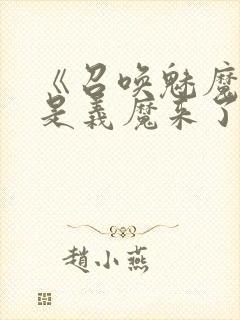 《召喚魅魔
是義魔來了
趙小燕